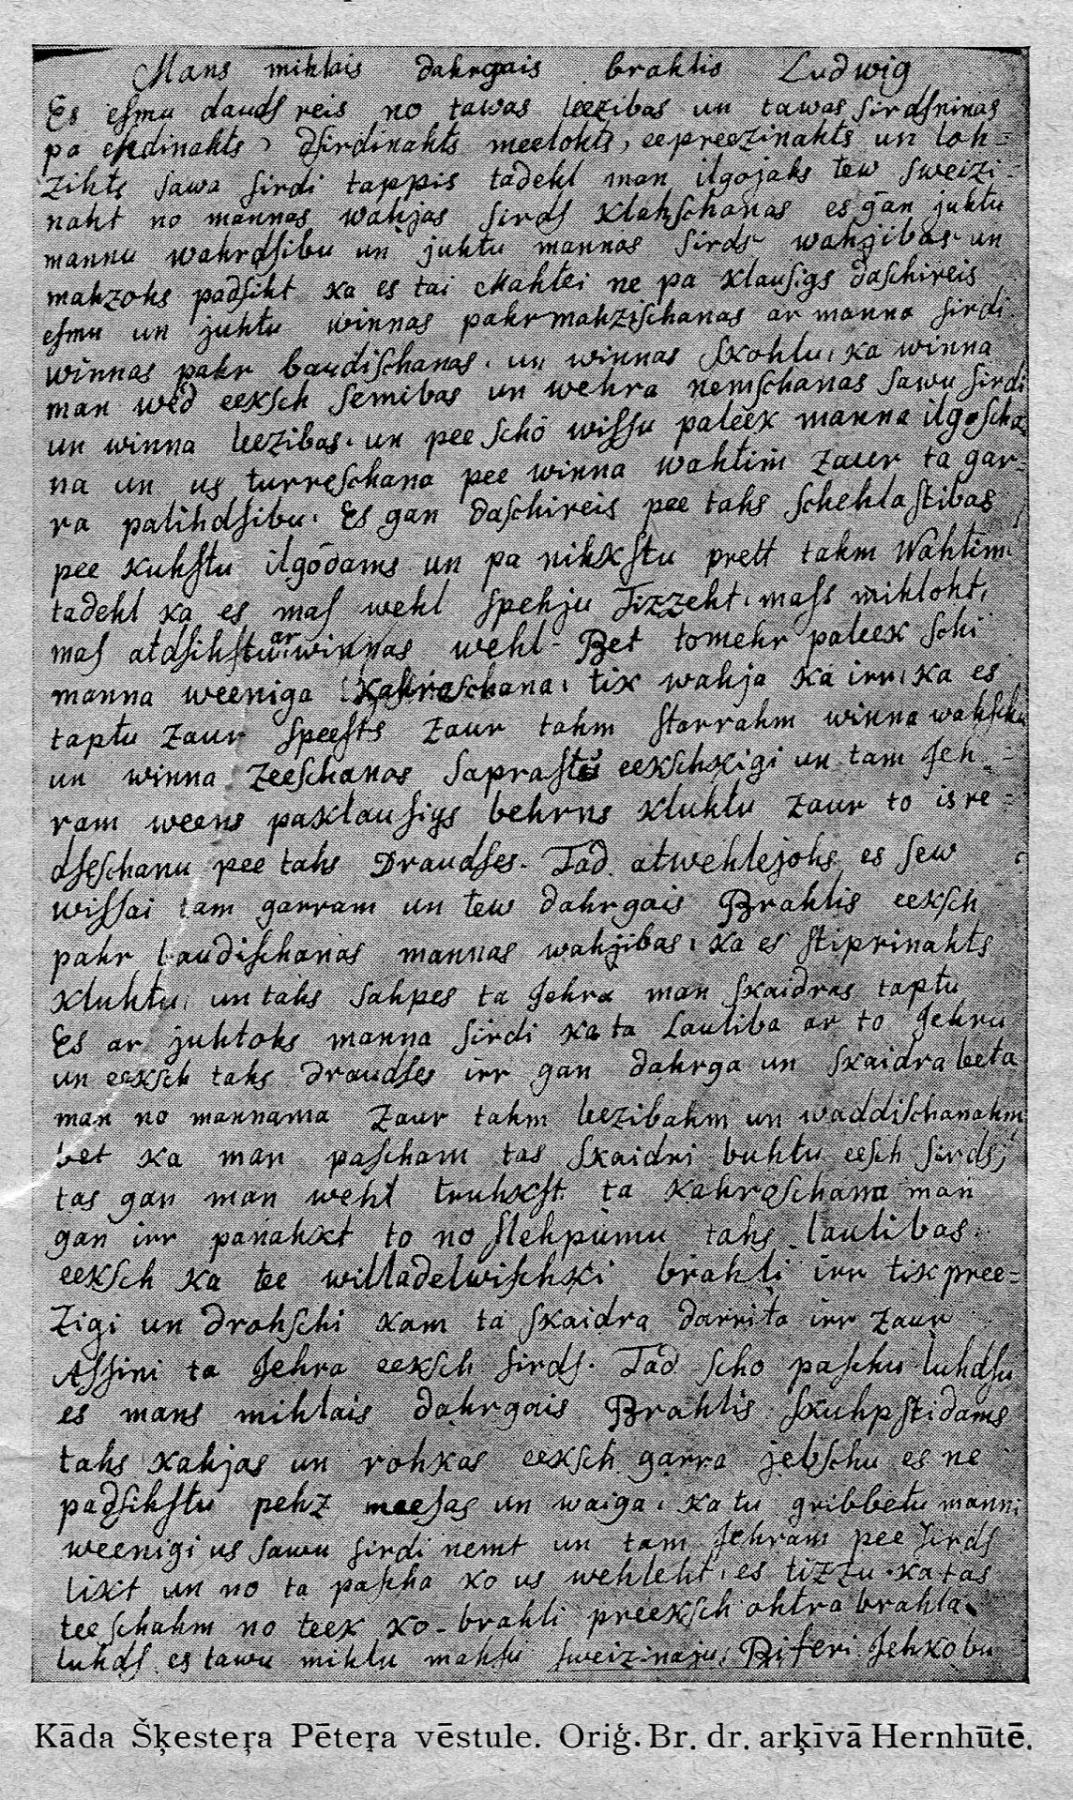 Mans mihlais dahrgais brahlis Ludwig
Es eſmu daudſ reis no tawas leezibas un tawas ſirdſninas
pa ehdinahts, dſirdinahts meelohts, eepreezinahts un loh-
zihts ſawa ſirdi tappis tadehl man ilgojahs tew ſweizi-
naht no mannas wahjas ſirdſ klahſchanas es gan juhtu
mannu wahrdſibu un juhtu mannas ſirds wahjibas un
mahzohs padſiht ka es tai Mahtei ne pa klauſigs daſchireis
eſmu un juhtu winnas pahrmahziſchanas ar manna ſirdi
winnas pahr baudiſchanas, un winnas ſkohlu, ka winna
man wed eekſch ſemibas un wehra nemſchanas ſawu ſirdi
un winna leezibas, un pee ſcho wiſſu paleek manna ilgoſcha
na un us turreſchana pee winna wahtim zaur ta gar-
ra palihdſibu. Es gan daſchireis pee tahs ſchehlaſtibas
pee kuhſtu ilgodams un pa nihkſtu prett tahm Wahtim
tadehl ka es maſ wehl ſpehju Tizzeht, maſs mihloht,
maſ atdſihſtu ar winnas wehl - Bet tomehr paleek ſchi
manna weeniga kahroſchana, tik wahja ka irr, ka es
taptu zaur ſpeeſts zaur tahm ſtarrahm winna wahſchu
un winna zeeſchanas ſapraſts eekſchkigi un tam Jeh-
ram weens paklauſigs behrns kluhtu zaur to isre-
dſeſchanu pee tahs Draudſes. Tad atwehlejohs es ſew
wiſſai tam garram un tew dahrgais Brahlis eekſch
pahr baudiſchanas mannas wahjibas, ka es ſtiprinahts
kluhtu, un tahs ſahpes ta Jehra man ſkaidras taptu
Es ar juhtohs manna ſirdi ka ta Lauliba ar to Jehru
un eekſch tahs draudſes irr gan dahrga un ſkaidra leeta
man no mannama zaur tahm leezibahm un waddiſchanahm
bet ka man paſcham tas ſkaidri buhtu eeſch ſirdſ,
tas gan man wehl truhkſt ta kahroſchana man
gan irr panahkt to noſlehpumu tahs laulibas.
eekſch ka tee willadelwiſchki brahli irr tik pree-
zigi un drohſchi kam ta ſkaidra darrita irr zaur
Aſſini ta Jehra eekſch ſirdſ. Tad ſcho paſchu luhdſu
es mans mihlais dahrgais Brahlis ſkuhpſtidams
tahs kahjas un rohkas eekſch garra jebſchu es ne
padſihſtu pehz meeſas un waiga, ka tu gribbetu manni
weenigi us ſawu ſirdi nemt un tam Jehram pee ſirds
likt un no ta paſcha ko us wehleht, es tizzu, ka tas
teeſchahm no teek ko - brahli preekſch ohtra brahla
luhdſ es tawu mihlu mahſu ſweizinaju, Riſeri Jehkobu
Kāda Šķesteŗa Pēteŗa vēstule. Oriģ. Br. dr. arķīvā Hernhūtē.